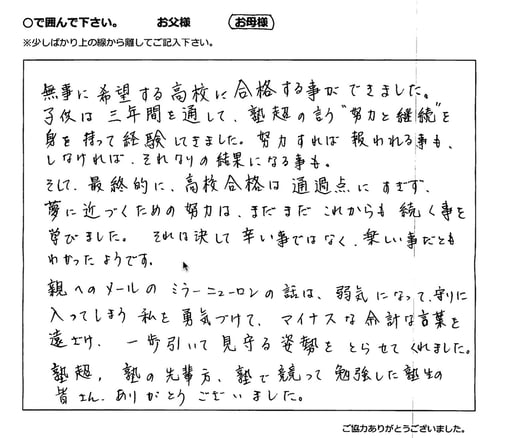 ○で囲んで下さい。 お父様 お母様
※少しばかり上の線から離してご記入下さい。
無事に希望する高校に合格する事ができました。
子供は三年間を通して、塾超の言う"努力と継続"を
身を持って経験してきました。努力すれば報われる事も、
しなければ、それなりの結果になる事も。
そして、最終的に、高校合格は通過点にすぎず、
夢に近づくための努力は、まだまだこれからも続く事を
学びました。それは決して辛い事ではなく、楽しい事だとも
わかったようです。
親へのメールのミラーニューロンの話は、弱気になって、守りに
入ってしまう私を勇気づけて、マイナスな余計な言葉を
遠ざけ、一歩引いて見守る姿勢をとらせてくれました。
塾超、塾の先輩方、塾で競って勉強した塾生の
皆さん、ありがとうございました。
ご協力ありがとうございました。